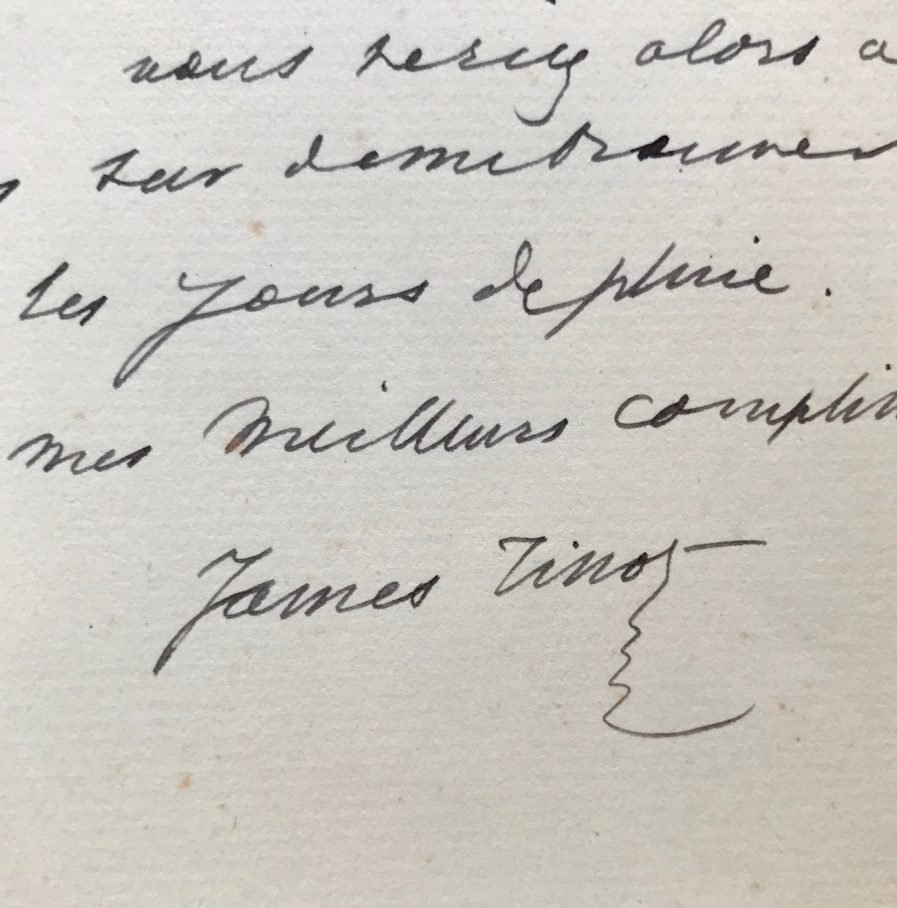 vous serez alors a
s sur de me trouver
les jours de pluie.
mes meilleurs complim
James Tissot